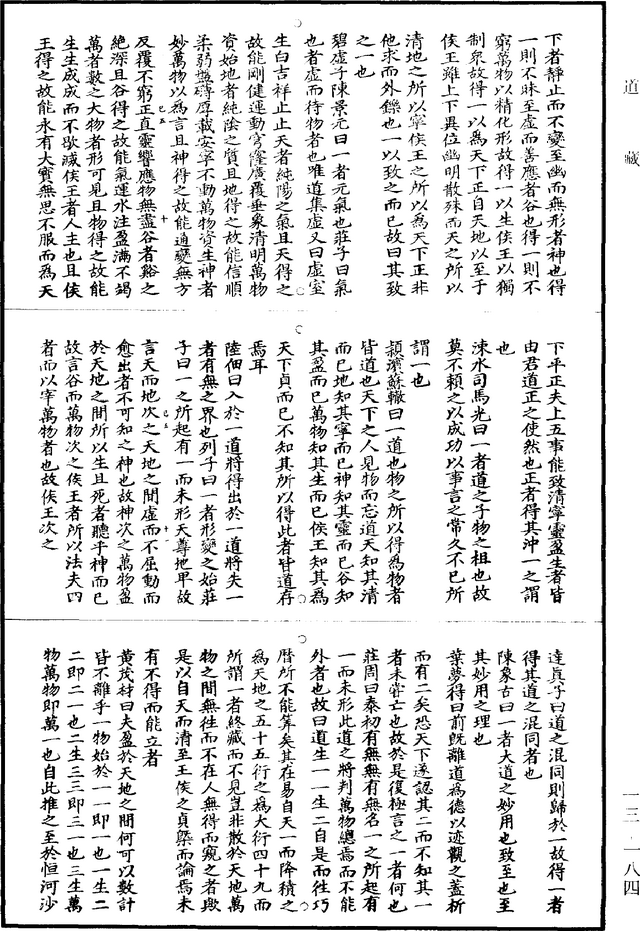 道藏
下者靜止而不變至幽而無形者神也得
一則不昧至虛而善應者谷也得一則不
窮萬物以精化形故得一以生侯王以獨
制衆故得一以爲天下正自天地以至于
侯王雖上下異位幽明散殊而天之所以
清地之所以寧侯王之所以爲天下正非
他求而外鑠也一以致之而已故曰其致
之一也
碧虛子陳景元曰一者元氣也莊子曰氣
也者虛而待物者也唯道集虛又曰虛室
生白吉祥止止天者純陽之氣且天得之
故能剛健運動穹窿廣覆垂象清明萬物
資始地者純陰之質且地得之故能信順
柔弱磅礴厚載安寧不動萬物資生神者
妙萬物以爲言且神得之故能通變無方
反覆不窮正直靈響應物無盡谷者谿之
絶深且谷得之故能氣運水注盈滿不竭
萬者數之大物者形可見且物得之故能
生生成成而不歇滅侯王者人主也且侯
王得之故能永有大寶無思不服而爲天
下平正夫上五事能致清寧靈盈生者皆
由君道正之使然也正者得其沖一之謂
也
涑水司馬光曰一者道之子物之祖也故
莫不賴之以成功以事言之常久不已所
謂一也
潁濱蘇轍曰一道也物之所以得爲物者
皆道也天下之人見物而忘道天知其清
而已地知其寧而已神知其靈而已谷知
其盈而已萬物知其生而已侯王知其爲
天下貞而已不知其所以得此者皆道存
焉耳
陸佃曰入於一道將得出於一道將失一
者有無之界也列子曰一者形變之始莊
子曰一之所起有一而未形天尊地卑故
言天而地次之天地之間虛而不屈動而
愈出者不可知之神也故神次之萬物盈
於天地之間所以生且死者聽乎神而已
故言谷而萬物次之侯王者所以法夫四
者而以宰萬物者也故侯王次之
達真子曰道之混同則歸於一故得一者
得其道之混同者也
陳象古曰一者大道之妙用也致至也至
其妙用之理也
葉夢得曰前旣離道爲德以迹觀之蓋析
而有二矣恐天下遂認其二而不知其一
者未嘗亡也故於是復極言之一者何也
莊周曰泰初有無無有無名一之所起有
一而未形此道之將判萬物總焉而不能
外者也故曰道生一一生二自是而往巧
曆所不能筭矣其在易自天一而降積之
爲天地之五十五行之爲大衍四十九而
所謂一者終藏而不見豈非散於天地萬
物之間無往而不在人無得而窺之者與
是以自天而清至王侯之貞槩而論焉未
有不得而能立者
黃茂材曰夫盈於天地之間何可以數計
皆不離乎一物始於一一即一也一生二
二即二一也二生三三即三一也三生萬
物萬物即萬一也自此推之至於恒河沙
一三・一八四